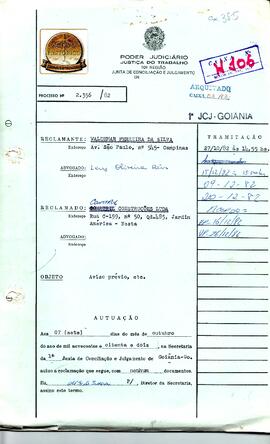 PODER JUDICIÁRIO
JUSTIÇA DO TRABALHO
10ª REGIÃO
JUNTA DE CONCILIAÇÃO E JULGAMENTO
DE
PROCESSO Nº 2.356 / 82
Nº 106
ARQUIVADO
1ª JCJ-GOIÂNIA
RECLAMANTE: WALDEMAR FERREIRA DA SILVA
Endereço Av. São Paulo, nº 545- Campinas
ADVOGADO:
Endereço
RECLAMADO: CONSTRUÇÕES LTDA
Endereço Rua C-159, nº 50, qd.485, Jardim
América - Nesta
ADVOGADO:
Endereço
OBJETO Aviso prévio, etc.
TRAMITAÇÃO
27/10/82 às 14,55 hs.
09-12-82
20-12-82
AUTUAÇÃO
Aos 07 (sete) dias do mês de outubro
do ano de mil novecentos e oitenta e dois, na Secretaria
da 1ª Junta de Conciliação e Julgamento de Goiânia-Go.
autuo a reclamação que segue, com nenhum documentos.
Eu, P/ Diretor da Secretaria,
assino este termo.